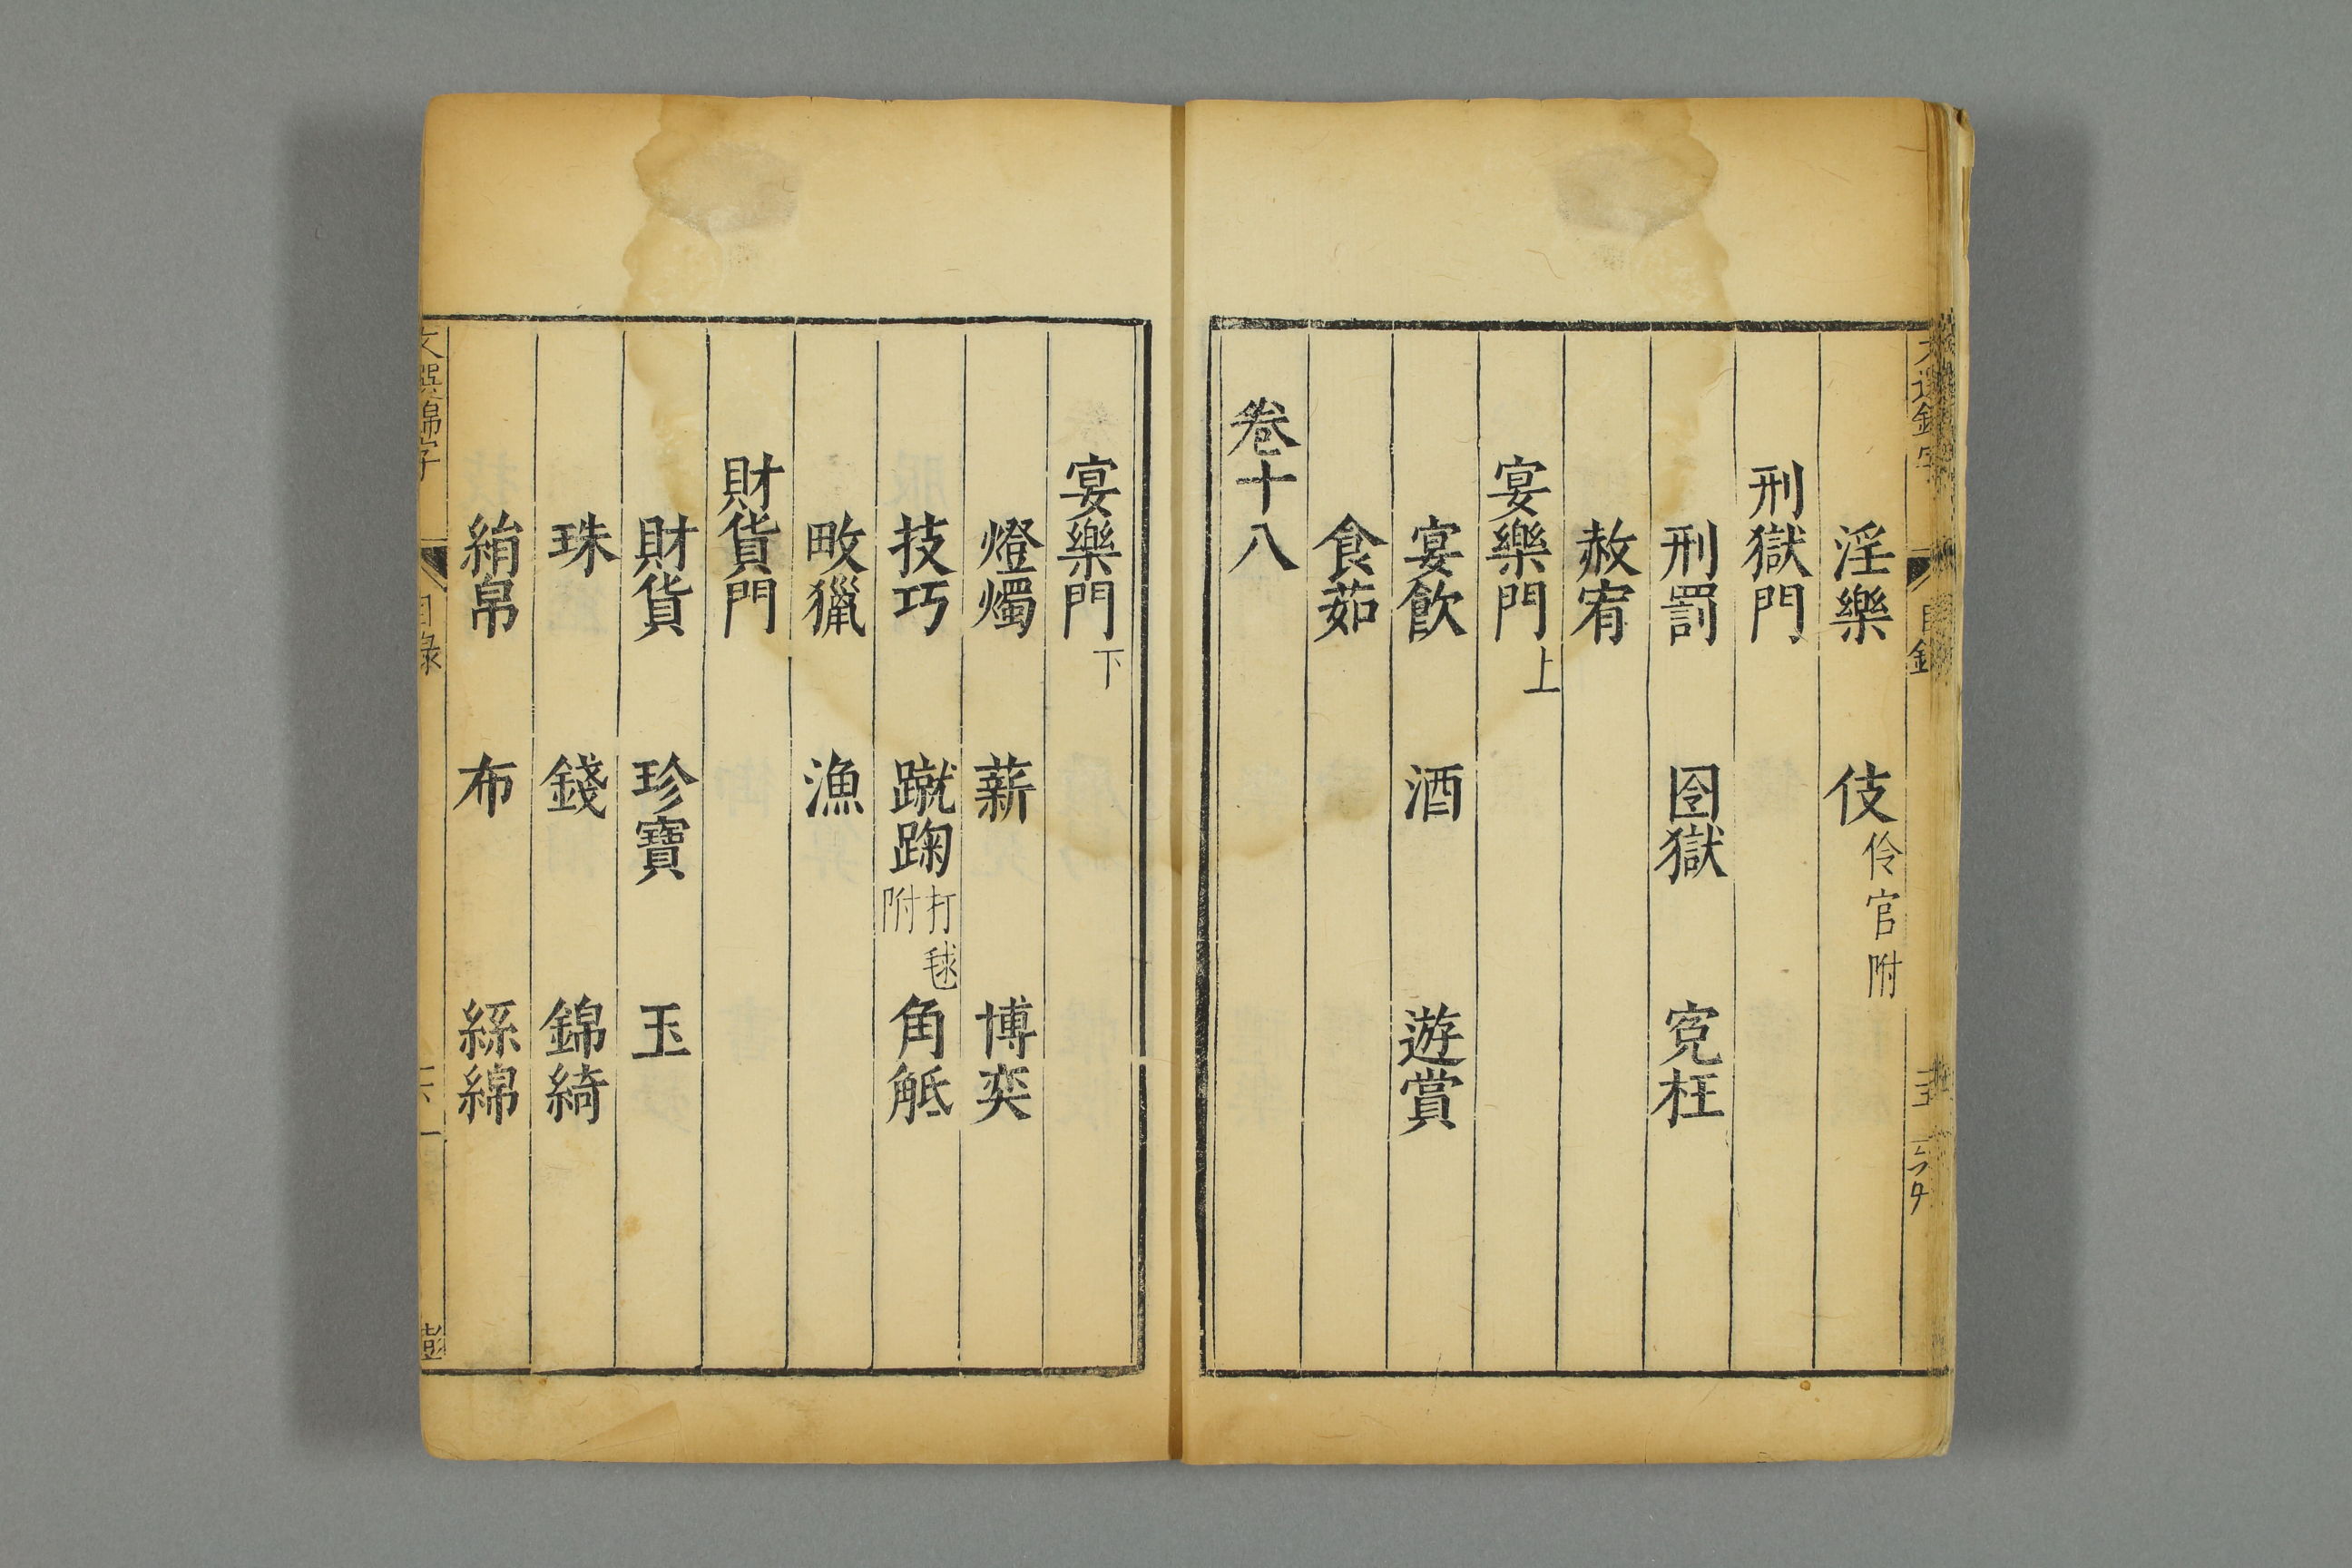 淫樂 伎伶官附
刑獄門
刑罰 囹獄 寃枉
赦宥
宴樂門上
宴飲 酒 遊賞
食茹
卷十八
宴樂門下
燈燭 薪 博奕
技巧 蹴踘打毬附 角觝
畋獵 漁
財貨門
財貨 珍寶 玉
珠 錢 錦綺
絹帛 布 絲綿
文選錦字 目録